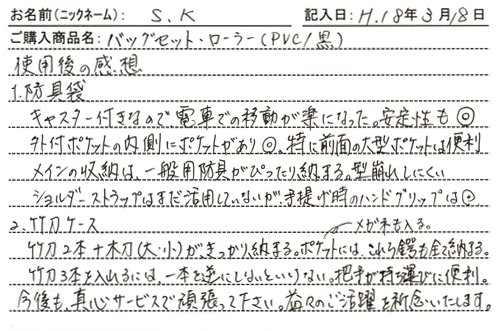 お名前(ニックネーム): S.K 記入日: H.18年3月18日
ご購入商品名: バッグセット・ローラー(PVC/黒)
使用後の感想
1.防具袋
キャスター付きなので電車での移動が楽になった。安定性も◎
外付ポケットの内側にポケットがあり◎。特に前面の大型ポケットは便利
メインの収納は、一般用防具がぴったり納まる。型崩れしにくい
ショルダーストラップはまだ活用していないが、手提げ時のハンドグリップは◎。
2.竹刀ケース
メガネも入る。
竹刀2本+木刀(大・小)が、きっかり納まる。ポケットには、これら鍔も全て納まる。
竹刀3本を入れるには、一本を逆にしないといけない。把手が持ち運びに便利。
今後も、真心サービスで頑張って下さい。益々のご活躍を祈念いたします。